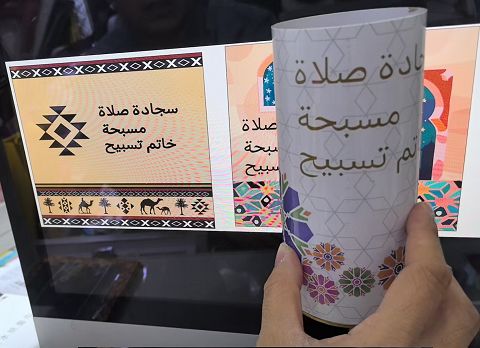 سجادة صلاة
مسبحة
خاتم تسبيح
صلاة
سجادة صلاة
مسبحة
تسبيح